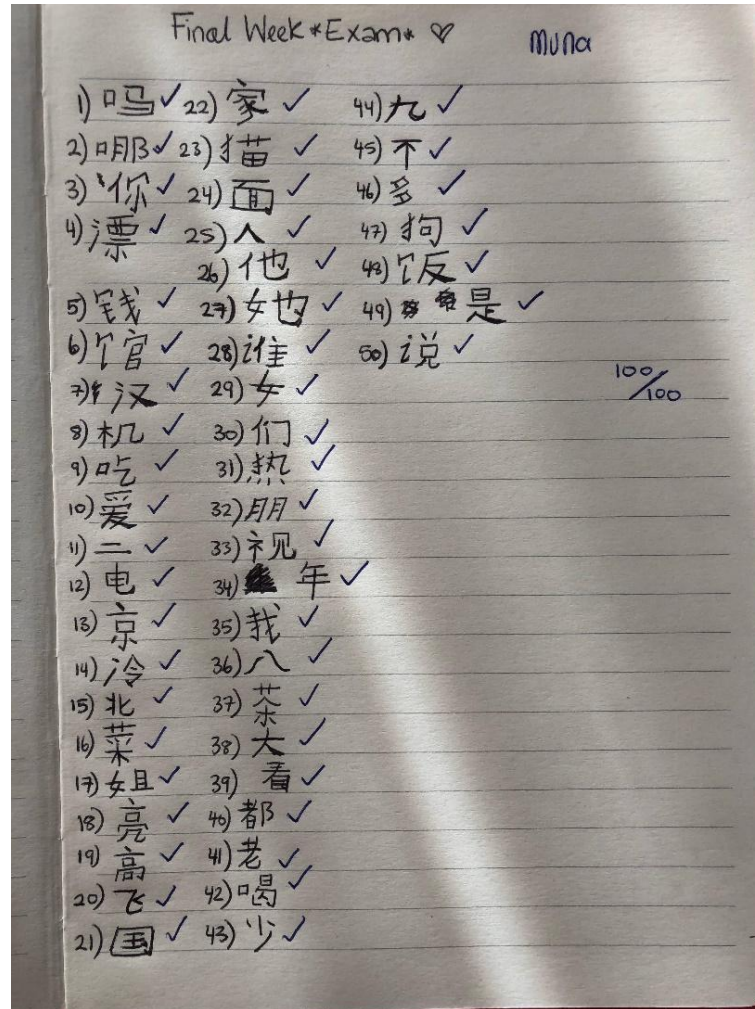 Final Week *Exam* ♡
Muna
1) 吗
2) 哪
3) 你
4) 漂
5) 钱
6) 馆
7) 汉
8) 机
9) 吃
10) 爱
11) 二
12) 电
13) 京
14) 冷
15) 北
16) 菜
17) 姐
18) 亮
19) 高
20) 飞
21) 国
22) 家
23) 猫
24) 面
25) 人
26) 他
27) 她
28) 谁
29) 女
30) 们
31) 热
32) 朋
33) 视
34) 年
35) 我
36) 八
37) 茶
38) 大
39) 看
40) 都
41) 老
42) 喝
43) 少
44) 九
45) 不
46) 多
47) 狗
48) 饭
49) 是
50) 说
100/100